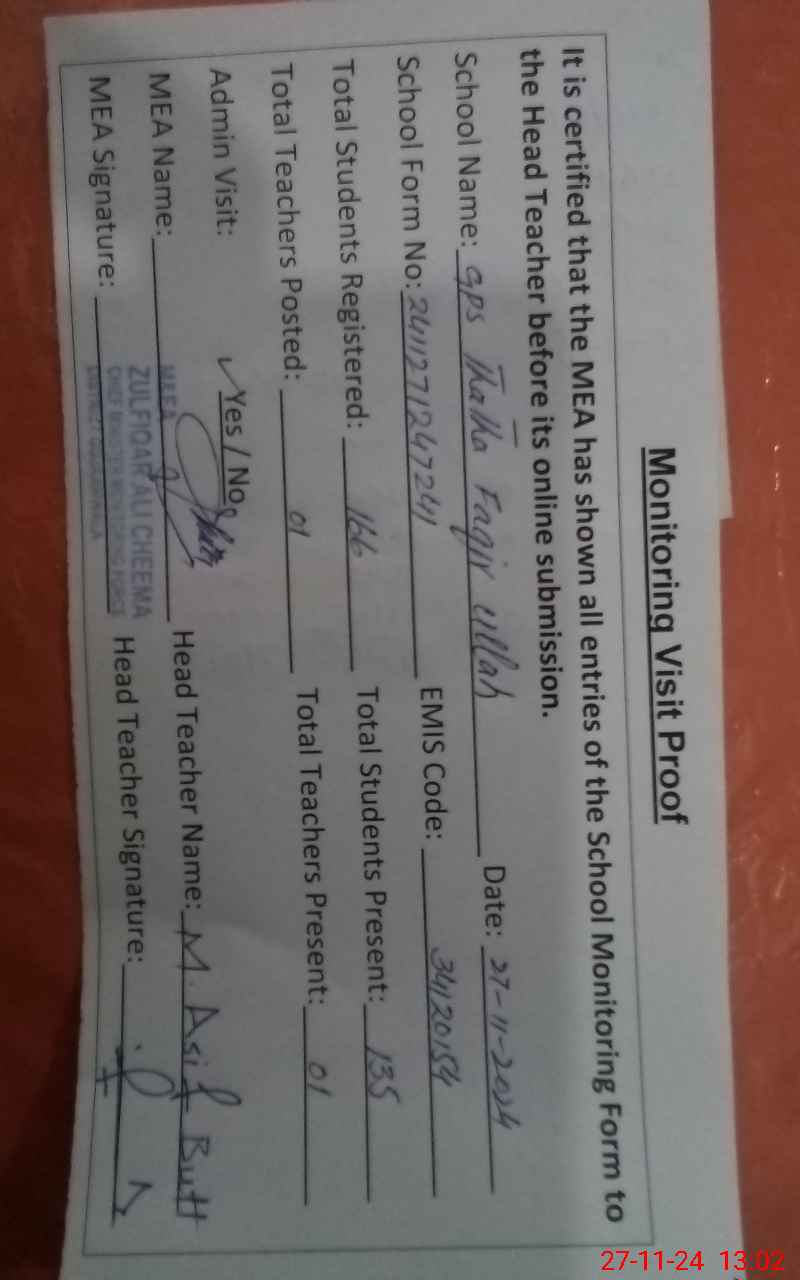 Monitoring Visit Proof
It is certified that the MEA has shown all entries of the School Monitoring Form to
the Head Teacher before its online submission.
School Name: GPS Thatha Faqir ullah Date: 27-11-2024
School Form No: 2411271247241 EMIS Code: 34120154
Total Students Registered: 166 Total Students Present: 135
Total Teachers Posted: 01 Total Teachers Present: 01
Admin Visit: ✓Yes / No
MEA Name: Head Teacher Name: M. Asif Butt
MEA Signature: Head Teacher Signature:
MEEA
ZULFIQAR ALI CHEEMA
CHIEF MINISTER MONITORING FORCE
DISTRICT GUJRANWALA
27-11-24 13:02